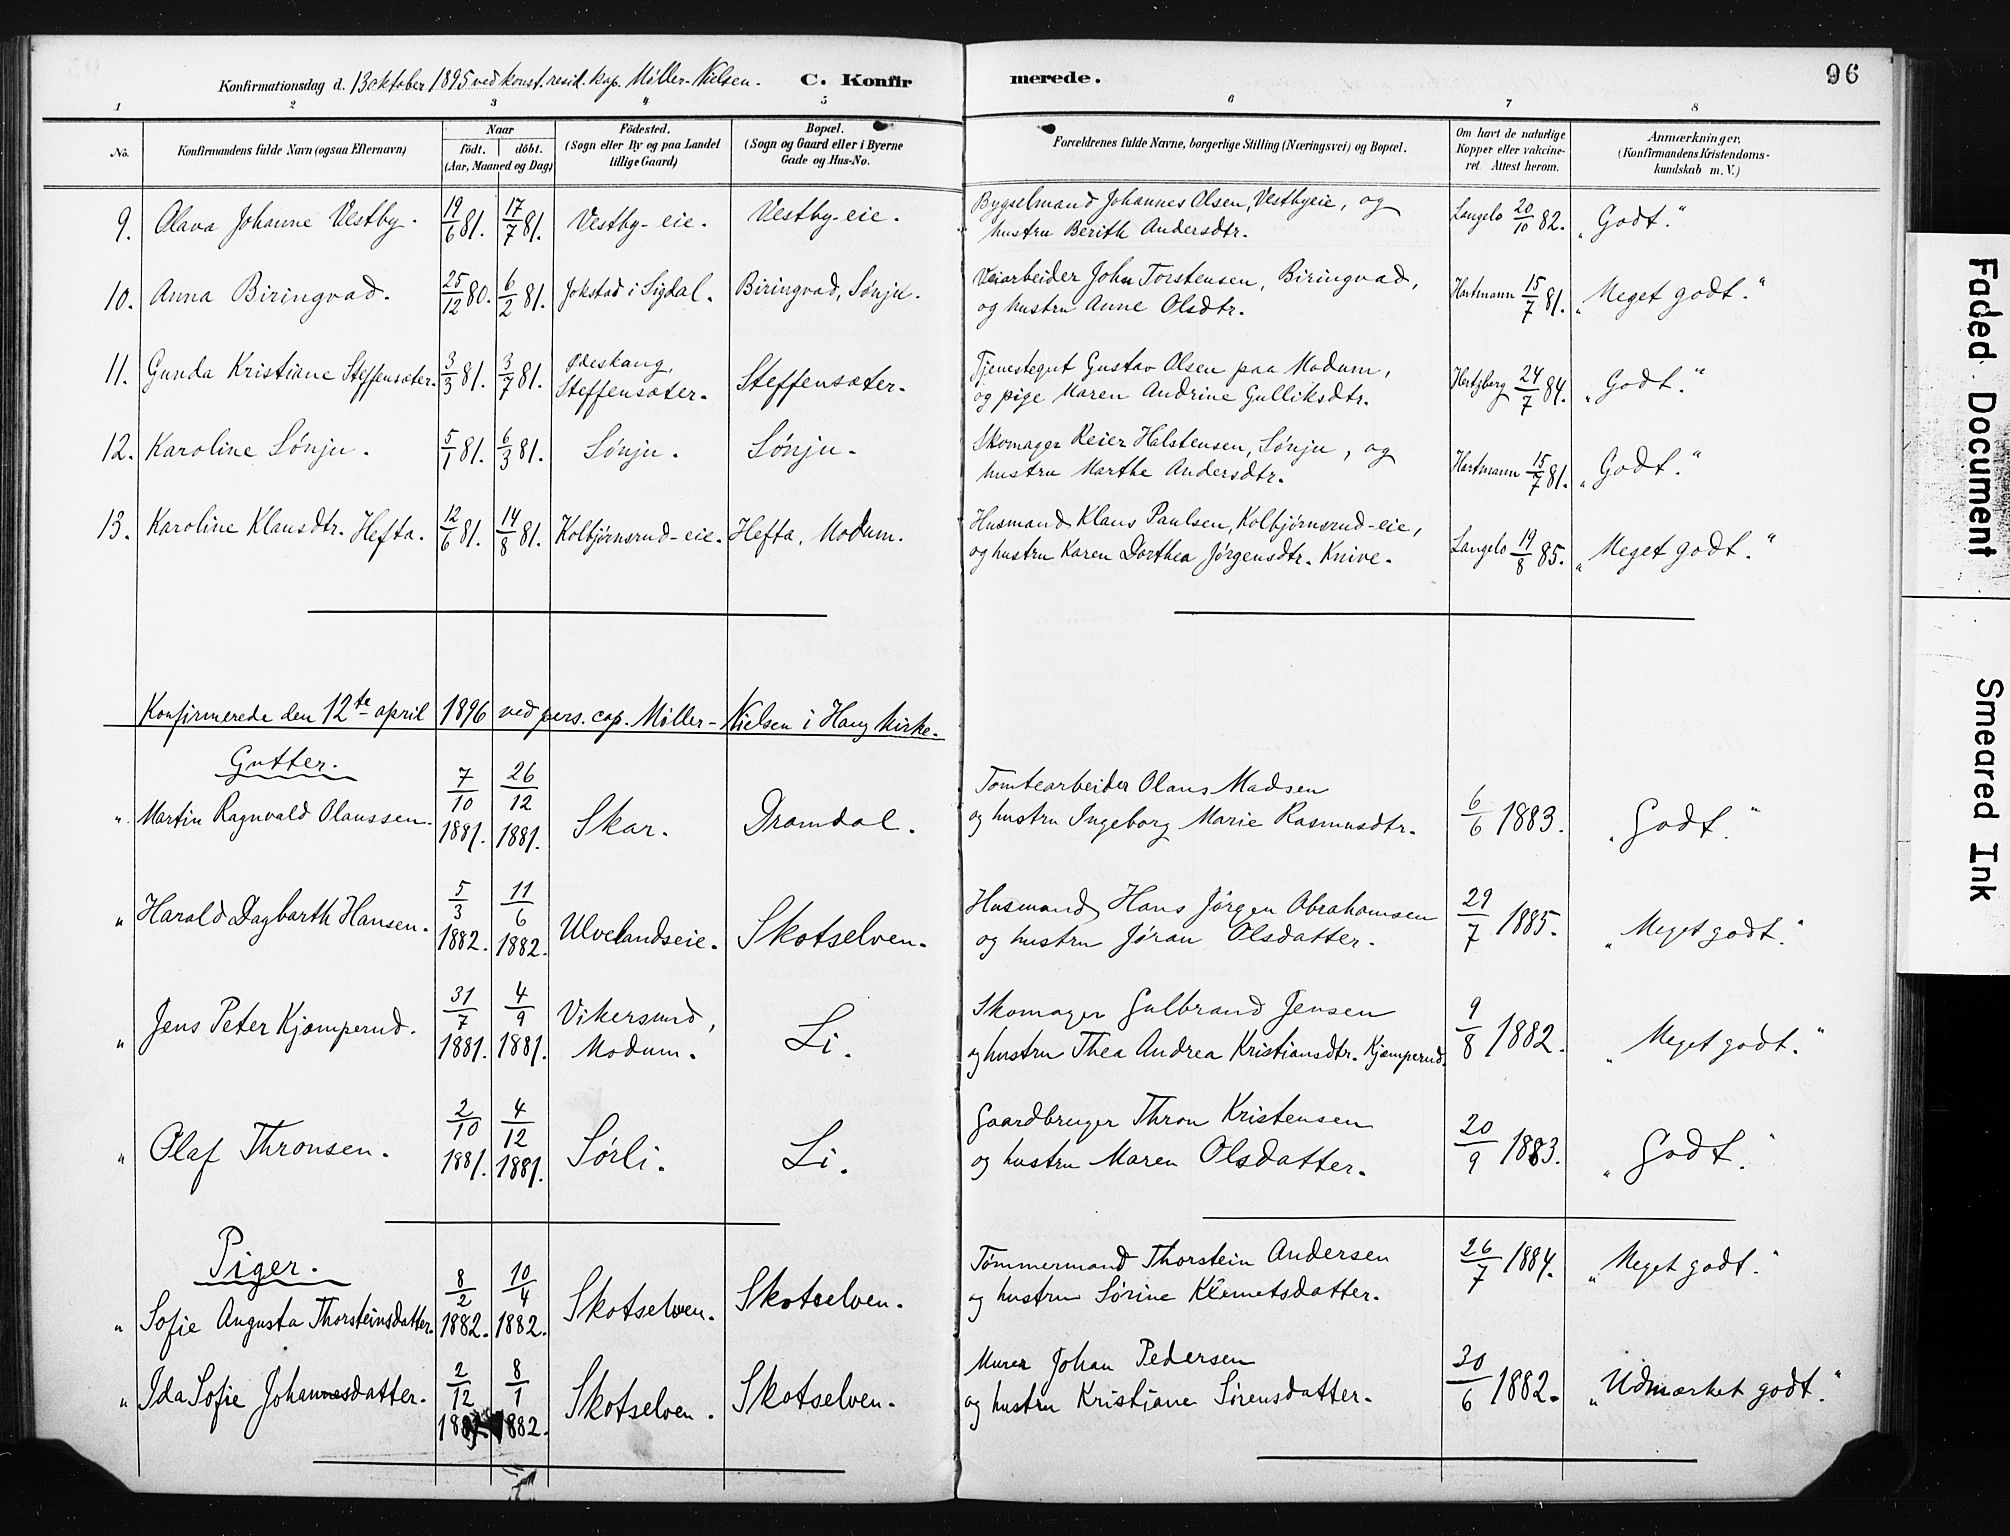 Konfirmationsdag d. 13 oktober 1895 ved konst. resid. kap. Møller-Nielsen. C. Konfirmerede. 96
1 2 3 4 5 6 7 8
No. Konfirmandens fulde Navn (ogsaa Efternavn) Naar födt. döbt. (Aar, Maaned og Dag) Födested. (Sogn eller By og paa Landet tillige Gaard) Bopæl. (Sogn og Gaard eller i Byerne Gade og Hus-No. Forældrenes fulde Navne, borgerlige Stilling (Næringsvei) og Bopæl. Om havt de naturlige Kopper eller vakcineret. Attest herom. Anmærkninger, (Konfirmandens Kristendomskundskab m. V.)
9. Olava Johanne Vestby. 19/6 81. 17/7 81. Vestby-eie. Vestby-eie. Bygselmand Johannes Olsen, Vestbyeie, og Langelo 20/10 82. "Godt."
hustru Berith Andersdtr.
10. Anna Biringvad. 25/12 80. 6/2 81. Jokstad i Sigdal. Biringvad, Sønju. Veiarbeider John Torstensen, Biringvad, Hartmann 15/7 81. "Meget godt."
og hustru Anne Olsdtr.
11. Gunda Kristiane Steffensæter. 3/3 81. 3/7 81. Steffensæter. Steffensæter. Tjenestegut Gustav Olsen paa Modum, Hertzberg 24/7 84. "Godt."
og pige Maren Andrine Gulliksdtr.
12. Karoline Sønju. 5/1 81. 6/3 81. Sønju. Sønju. Skomager Reier Halstensen, Sønju, og Hartmann 15/7 81. "Godt."
hustru Marthe Andersdtr.
13. Karoline Klausdtr. Hefta. 12/6 81. 14/8 81. Kolbjørnsrud-eie. Hefta, Modum. Husmand Klaus Paulsen, Kolbjørnsrud-eie, Langelo 19/8 85. "Meget godt."
og hustru Karen Dorthea Jørgensdtr. Knive.
Konfirmerede den 12te april 1896 ved pers. cap. Møller-Nielsen i Haug kirke.
Gutter.
" Martin Ragnvald Olaussen. 7/10 1881. 26/12 1881. Skar. Dramdal. Tomtearbeider Olaus Madsen 6/6 1883. "Godt."
og hustru Ingeborg Marie Rasmusdtr.
" Harald Dagbarth Hansen. 5/3 1882. 11/6 1882. Ulvelandseie. Skotselven. Husmand Hans Jørgen Abrahamsen 29/7 1885. "Meget godt."
og hustru Jøran Olsdatter.
" Jens Peter Kjæmperud. 31/7 1881. 4/9 1881. Vikersund, Modum. Li. Skomager Gulbrand Jensen 9/8 1882. "Meget godt."
og hustru Thea Andrea Kristiansdtr. Kjæmperud.
" Olaf Thronsen. 2/10 1881. 4/12 1881. Sørli. Li. Gaardbruger Thron Kristensen 20/9 1883. "Godt."
og hustru Maren Olsdatter.
Piger.
" Sofie Augusta Thorsteinsdatter. 8/2 1882. 10/4 1882. Skotselven. Skotselven. Tømmermand Thorstein Andersen 26/7 1884. "Meget godt."
og hustru Sørine Klemetsdatter.
" Ida Sofie Johannesdatter. 2/12 8/1 1882. Skotselven. Skotselven. Murer Johan Pedersen 30/6 1882. "Udmærket godt."
og hustru Kristiane Sørensdatter.
Faded Document
Smeared Ink